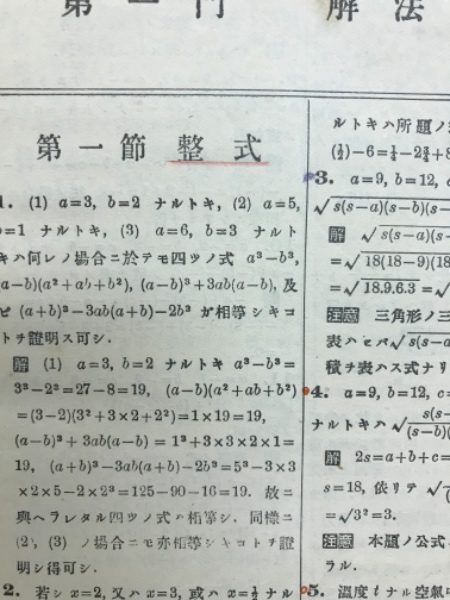 第一門 解法
第一節 整式
1. (1) a=3, b=2 ナルトキ, (2) a=5,
b=1 ナルトキ, (3) a=6, b=3 ナルト
キハ何レノ場合ニ於テモ四ツノ式 a³−b³,
(a−b)(a²+ab+b²), (a−b)³+3ab(a−b), 及
ビ (a+b)³−3ab(a+b)−2b³ ガ相等シキコ
トヲ證明ス可シ.
解 (1) a=3, b=2 ナルトキ a³−b³=
3³−2³=27−8=19, (a−b)(a²+ab+b²)
=(3−2)(3²+3×2+2²)=1×19=19,
(a−b)³+3ab(a−b)=1³+3×3×2×1=
19, (a+b)³−3ab(a+b)−2b³=5³−3×3
×2×5−2×2³=125−90−16=19. 故ニ
與ヘラレタル四ツノ式ハ相等シ. 同樣ニ
(2), (3) ノ場合ニモ亦相等シキコトヲ證
明シ得可シ.
2. 若シ x=2, 又ハ x=3, 或ハ x=½ ナル
ルトキハ所題ノ
(½)−6=
3. a=9, b=12,
√s(s−a)(s−b)(s−
解 √s(s−a)(s−
=√18(18−9)(18
=√18.9.6.3=√
注意 三角形ノ三
表ハセバ√s(s−a
積ヲ表ハス式ナリ
4. a=9, b=12, c=
ナルトキハ√s(s−/(s−b)(
解 2s=a+b+c=
s=18, 依リテ √
=√3²=3.
注意 本題ノ公式
ラル.
5. 溫度 t ナル空氣